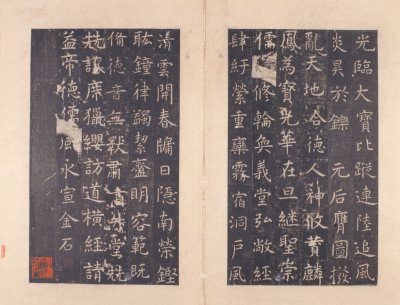 光臨大寶比蹤連陸追風
炎昊於鑠元后膺圖撥
亂天地合德人神攸贊麟
鳳為寶光華在旦繼聖崇
儒修輪奐義堂弘敞經
肆紆縈重欒霧宿洞戶風
清雲開春牖日隱南榮鏗
鈜鐘律蠲絜齍明容範既
備德音無斁肅堂兢
兢讓席獵纓訪道橫經請
益帝德儒風永宣金石